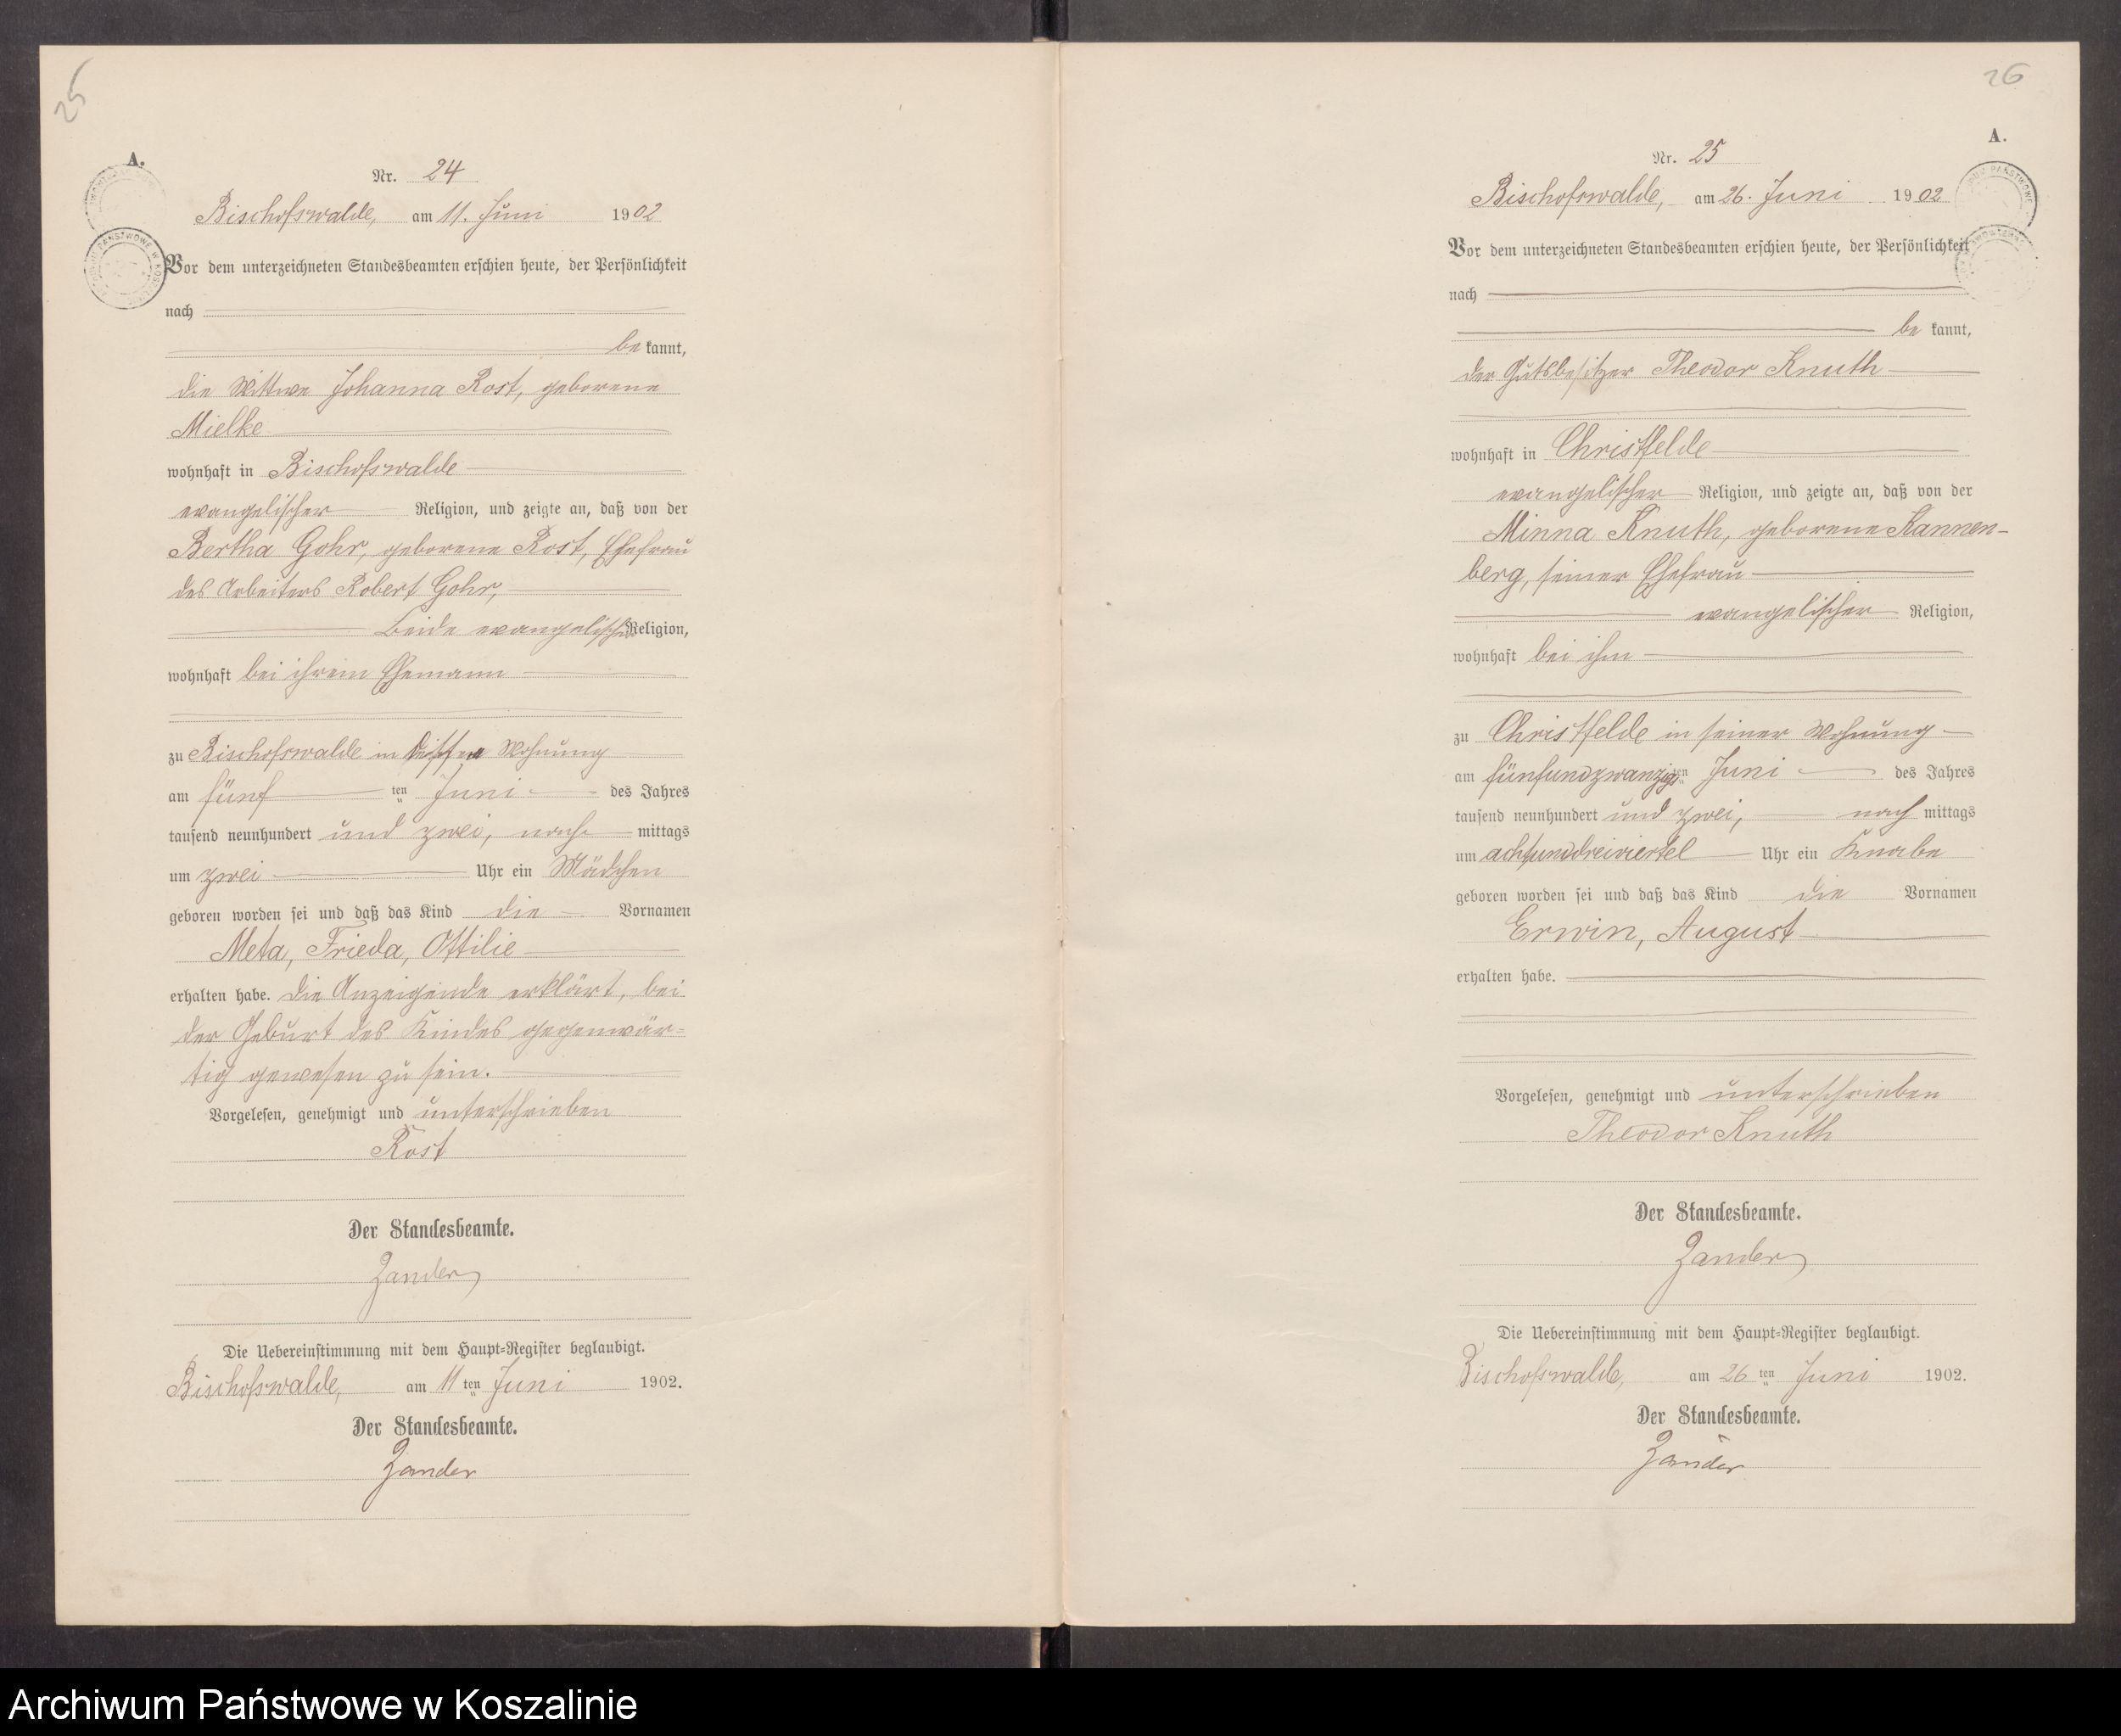 25
A.
Nr. 24
Bischofswalde, am 11. Juni 1902
Vor dem unterzeichneten Standesbeamten erschien heute, der Persönlichkeit
nach
be kannt,
die Wittwe Johanna Rost, geborene
Mielke
wohnhaft in Bischofswalde
evangelischer Religion, und zeigte an, daß von der
Bertha Gohr, geborene Rost, Ehefrau
des Arbeiters Robert Gohr,
beide evangelischer Religion,
wohnhaft bei ihrem Ehemann
zu Bischofswalde in dessen Wohnung
am fünf ten Juni des Jahres
tausend neunhundert und zwei, nach mittags
um zwei Uhr ein Mädchen
geboren worden sei und daß das Kind die Vornamen
Meta, Frieda, Ottilie
erhalten habe. Die Anzeigende erklärt, bei
der Geburt des Kindes gegenwär=
tig gewesen zu sein.
Vorgelesen, genehmigt und unterschrieben
Rost
Der Standesbeamte.
Zander
Die Uebereinstimmung mit dem Haupt=Register beglaubigt.
Bischofswalde, am 11 ten Juni 1902.
Der Standesbeamte.
Zander
26
A.
Nr. 25
Bischofswalde, am 26. Juni 1902
Vor dem unterzeichneten Standesbeamten erschien heute, der Persönlichkeit
nach
be kannt,
der Gutsbesitzer Theodor Knuth
wohnhaft in Christfelde
evangelischer Religion, und zeigte an, daß von der
Minna Knuth, geborene Kannen-
berg, seiner Ehefrau
evangelischer Religion,
wohnhaft bei ihm
zu Christfelde in seiner Wohnung
am fünfundzwanzigsten Juni des Jahres
tausend neunhundert und zwei, nach mittags
um achtunddreiviertel Uhr ein Knabe
geboren worden sei und daß das Kind die Vornamen
Erwin, August
erhalten habe.
Vorgelesen, genehmigt und unterschrieben
Theodor Knuth
Der Standesbeamte.
Zander
Die Uebereinstimmung mit dem Haupt=Register beglaubigt.
Bischofswalde, am 26 ten Juni 1902.
Der Standesbeamte.
Zander
Archiwum Państwowe w Koszalinie